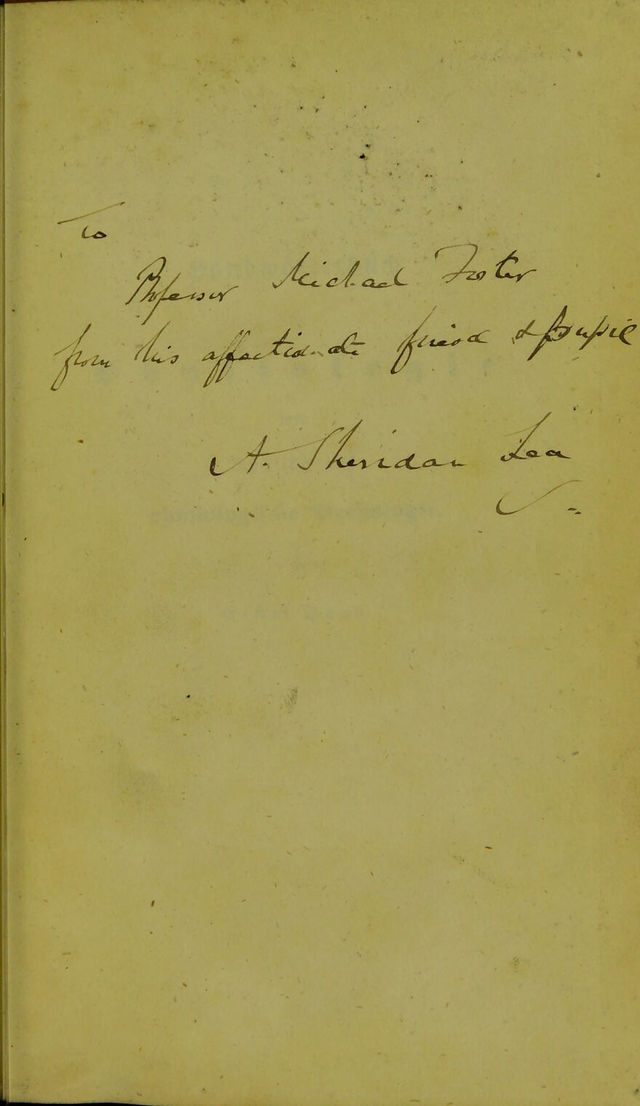 To
Professor Michael Foster
from his affectionate friend & pupil
A. Sheridan Lea